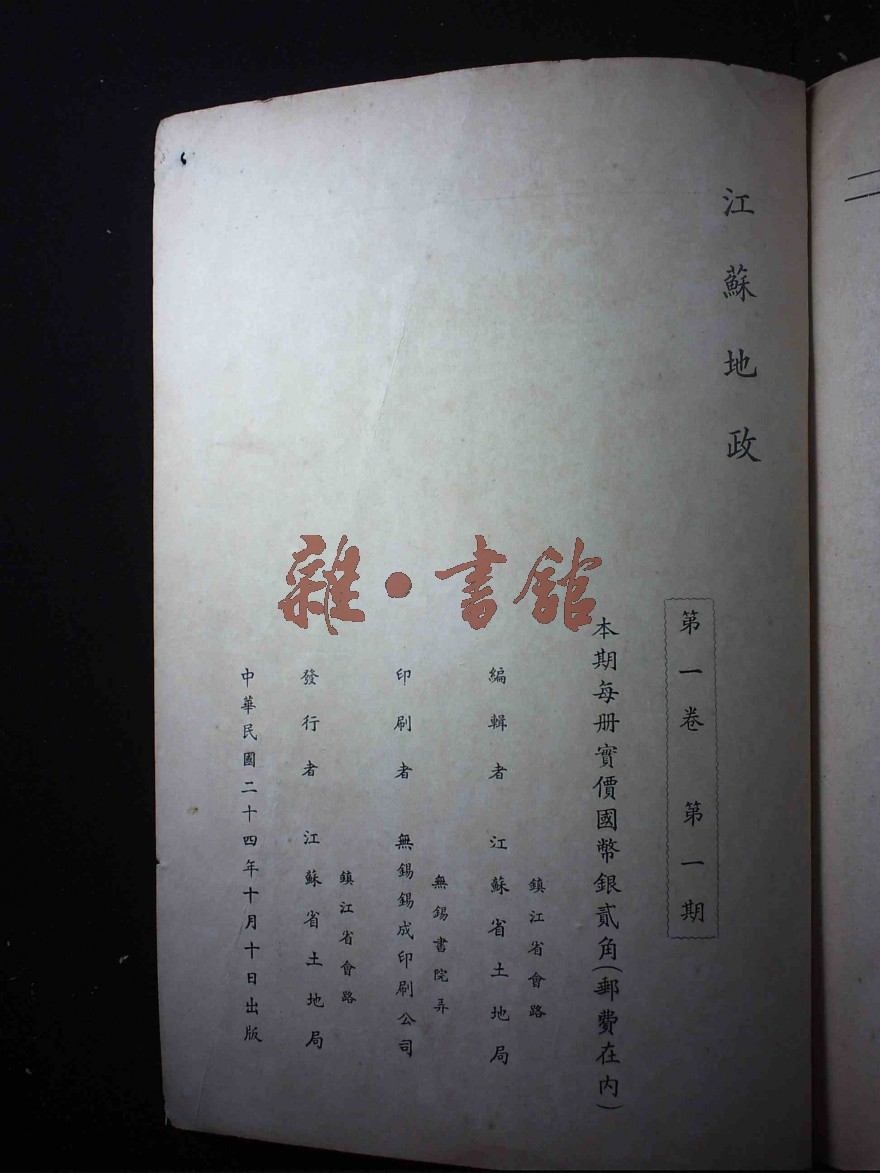 江蘇地政
第一卷 第一期
本期每册實價國幣銀貳角(郵費在內)
鎮江省會路
編輯者 江蘇省土地局
無錫書院弄
印刷者 無錫錫成印刷公司
鎮江省會路
發行者 江蘇省土地局
中華民國二十四年十月十日出版
雜·書館